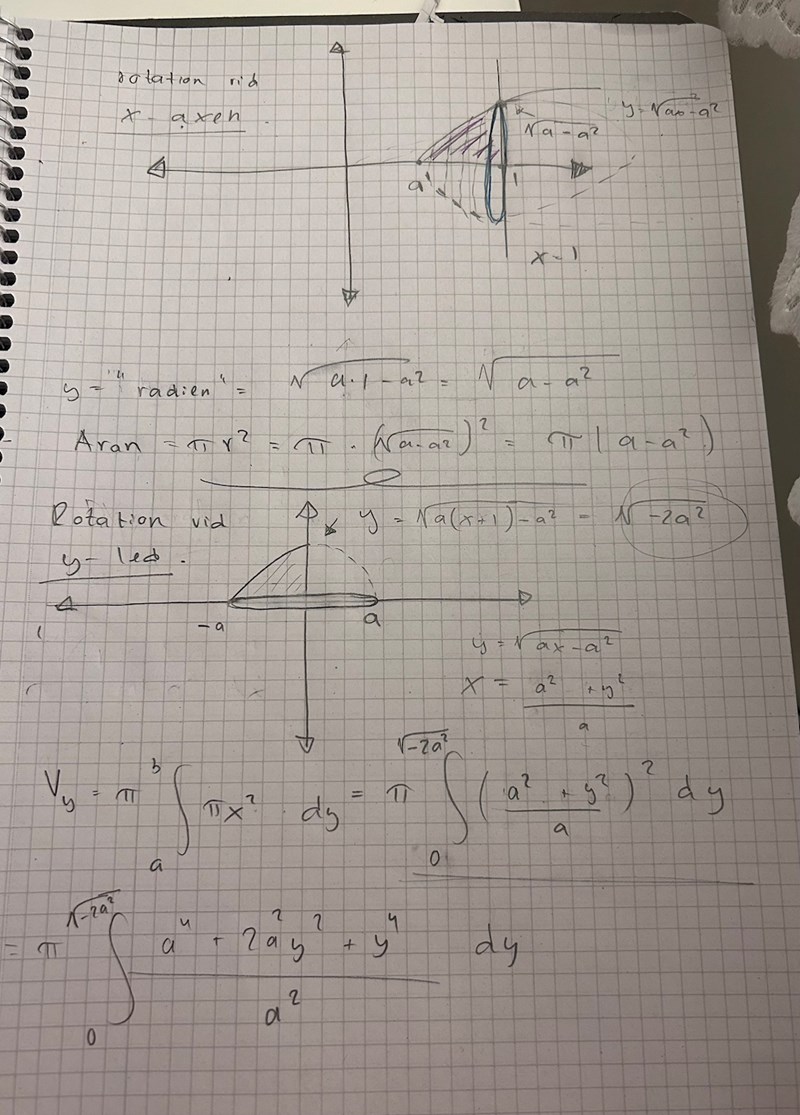 rotation vid
x-axen.
y=√ax-a²
√a-a²
a
1
x-1
y = "radien" = √a·1-a² = √a-a²
Aran = πr² = π·(√a-a²)² = π(a-a²)
Rotation vid
y = √a(x+1)-a² = √-2a²
y-led.
-a
a
y = √ax-a²
x = (a² + y²)/a
V_y = π ∫_a^b πx² dy = π ∫_0^√-2a² ((a² + y²)/a)² dy
= π ∫_0^√-2a² (a⁴ + 2a²y² + y⁴)/a² dy